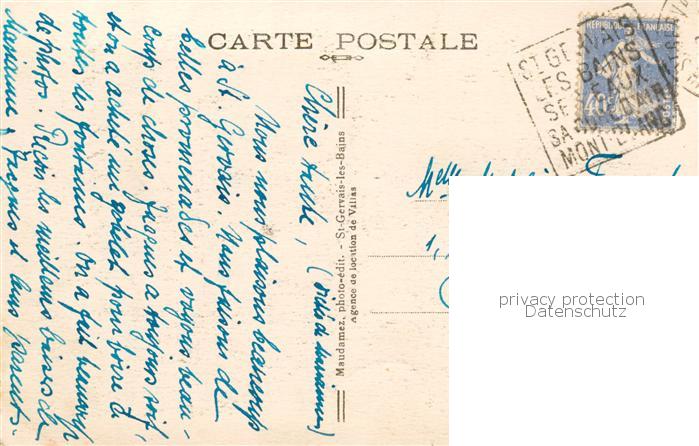 CARTE POSTALE
RÉPUBLIQUE FRANÇAISE
40c
ST GERVAIS
LES BAINS
SES EAUX
MONT BLANC
Maudamez, photo-édit. - St-Gervais-les-Bains
Agence de location de Villas
Chère tante,
Nous nous plaisons beaucoup
à St. Gervais. Nous faisons de
belles promenades et voyons beau-
coup de choses. Jacques a toujours soif
et on a acheté un gobelet pour boire à
toutes les fontaines. On a fait beaucoup
de photos. Reçois les meilleurs baisers de
Marianne, Jacques et leurs parents.
Melle
1,
privacy protection
Datenschutz